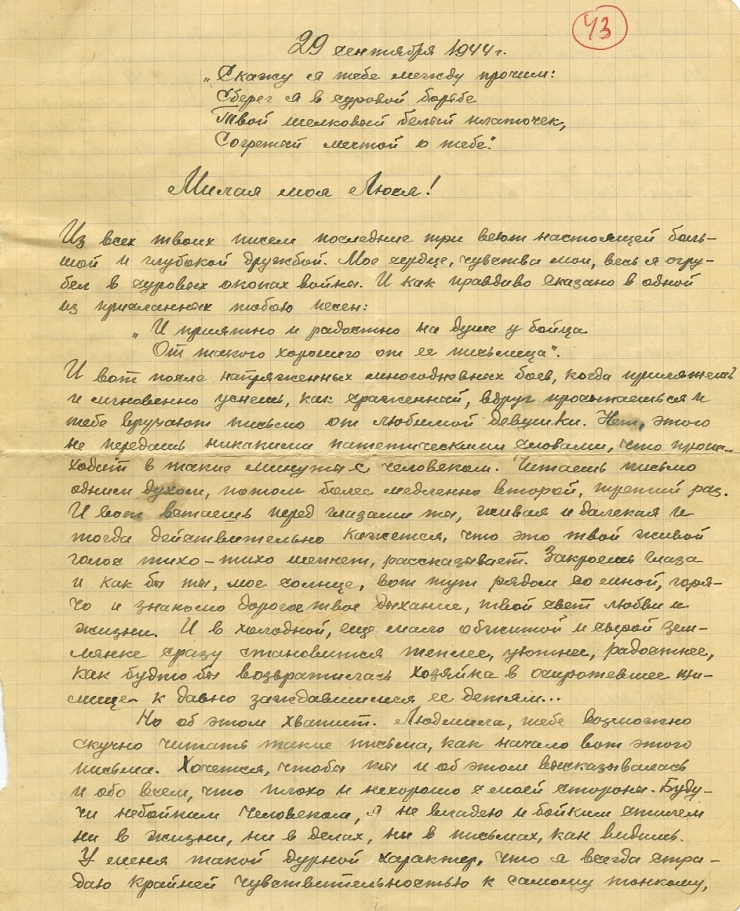 43
29 сентября 1944 г.
„Скажу я тебе между прочим:
Сберег я в суровой борьбе
Твой шелковый белый платочек,
Согретый мечтой о тебе".
Милая моя Люся!
Из всех твоих писем последние три веют настоящей боль-
шой и глубокой дружбой. Мое сердце, чувства мои, весь я огру-
бел в суровых окопах войны. И как правдиво сказано в одной
из присланных тобою песен:
„И приятно и радостно на душе у бойца
От такого хорошего от ее письмеца".
И вот после напряженных многодневных боев, когда приляжешь
и мгновенно уснешь, как сраженный, вдруг просыпаешься и
тебе вручают письмо от любимой девушки. Нет, этого
не передашь никакими патетическими словами, что проис-
ходит в такие минуты с человеком. Читаешь письмо
одним духом, потом более медленно второй, третий раз.
И вот встаешь перед глазами ты, живая и далекая и
тогда действительно кажется, что это твой живой
голос тихо-тихо шепчет, рассказывает. Закроешь глаза
и как бы ты, мое солнце, вот тут рядом со мной, горя-
чо и знакомо дорогое твое дыхание, твой свет любви и
жизни. И в холодной, еще мало обжитой и сырой зем-
лянке сразу становится теплее, уютнее, радостнее,
как будто бы возвратилась хозяйка в осиротевшее жи-
лище к давно заждавшимся ее детям...
Но об этом хватит. Людмила, тебе возможно
скучно читать такие письма, как начало вот этого
письма. Хочется, чтобы ты и об этом высказывалась
и обо всем, что плохо и нехорошо с моей стороны. Буду-
чи небойким человеком, я не владею и бойким стилем
ни в жизни, ни в делах, ни в письмах, как видишь.
У меня такой дурной характер, что я всегда стра-
даю крайней чувствительностью к самому тонкому,